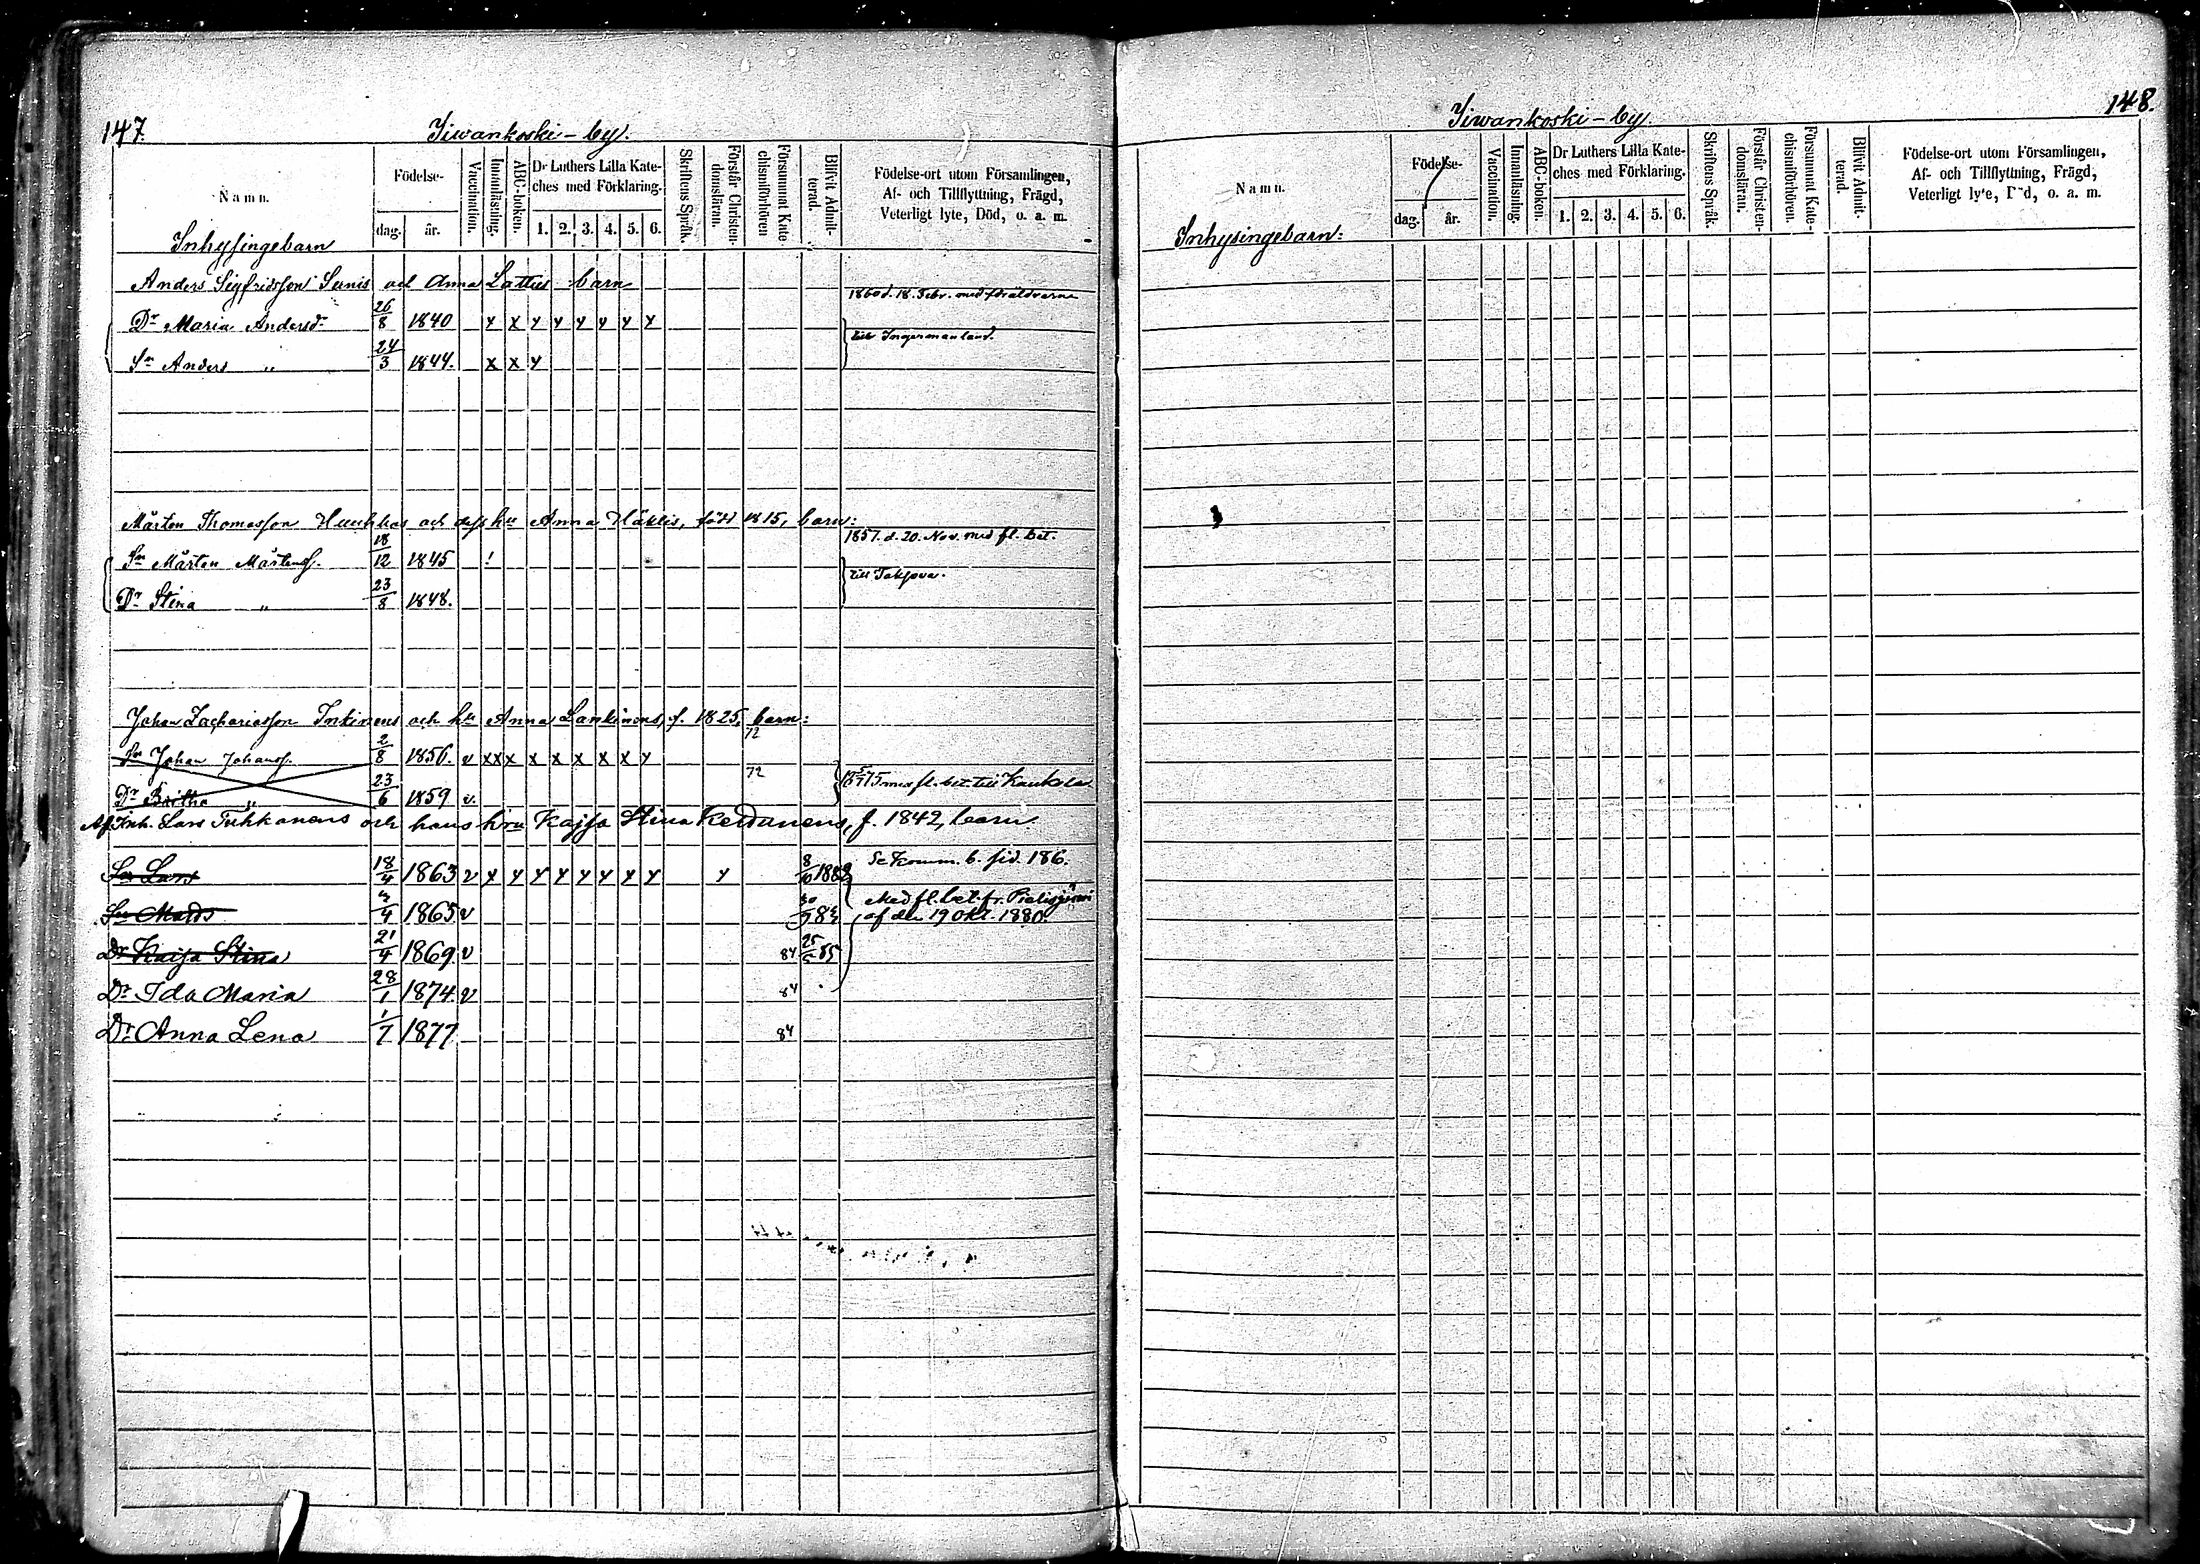 147.
Iiwankoski - by.
Namn.
Födelse-
dag.
år.
Vaccination.
Innanläsning.
ABC-boken.
Dr Luthers Lilla Kate-
ches med Förklaring.
1. 2. 3. 4. 5. 6.
Skriftens Språk.
Förstår Christen-
domsläran.
Försummat Kate-
chismiförhören
Blifvit Admit-
terad.
Födelse-ort utom Församlingen,
Af- och Tillflyttning, Frägd,
Veterligt lyte, Död, o. a. m.
Inhysingebarn
Anders Sigfridsson Sunis och Anna Lattus barn
1860 d. 18. Febr. med föräldrarne
Dr Maria Andersdr 26/8 1840 x x x x x x x x
till Ingermanland.
Sn Anders " 24/3 1844. x x x
Mårten Thomasson och dess hu Anna född 1815, barn:
1857. d. 20. Nov. med fl. bet.
Sn Mårten Mårtenss. 18/12 1845 !
till Toksova.
Dr Stina " 23/8 1848.
Johan Zachariasson Inkinens och hu Anna Lankinens, f. 1825, barn:
Sn Johan Johanss. 2/8 1856. v x x x x x x x x x 72
Dr Britha " 23/6 1859 v. 72
75 med fl. bet. till Kaukola
Af Inh. Lars Tuhkanens och hans hru Kajsa Stina f. 1842, barn
Sn Lars 18/4 1863 v x x x x x x x x x 8/10 1882
Se Komm. b. sid. 186.
Sn Mats 1865 v 83
Med fl. bet. fr. Pielisjärvi
af den 19 Okt. 1880.
Dr Kaisa Stina 21/4 1869. v 84 85
Dr Ida Maria 28/1 1874. v 84
Dr Anna Lena 1/7 1877 84
148.
Iiwankoski - by.
Namn.
Födelse-
dag.
år.
Vaccination.
Innanläsning.
ABC-boken.
Dr Luthers Lilla Kate-
ches med Förklaring.
1. 2. 3. 4. 5. 6.
Skriftens Språk.
Förstår Christen-
domsläran.
Försummat Kate-
chismiförhören.
Blifvit Admit-
terad.
Födelse-ort utom Församlingen,
Af- och Tillflyttning, Frägd,
Veterligt lyte, Död, o. a. m.
Inhysingebarn: